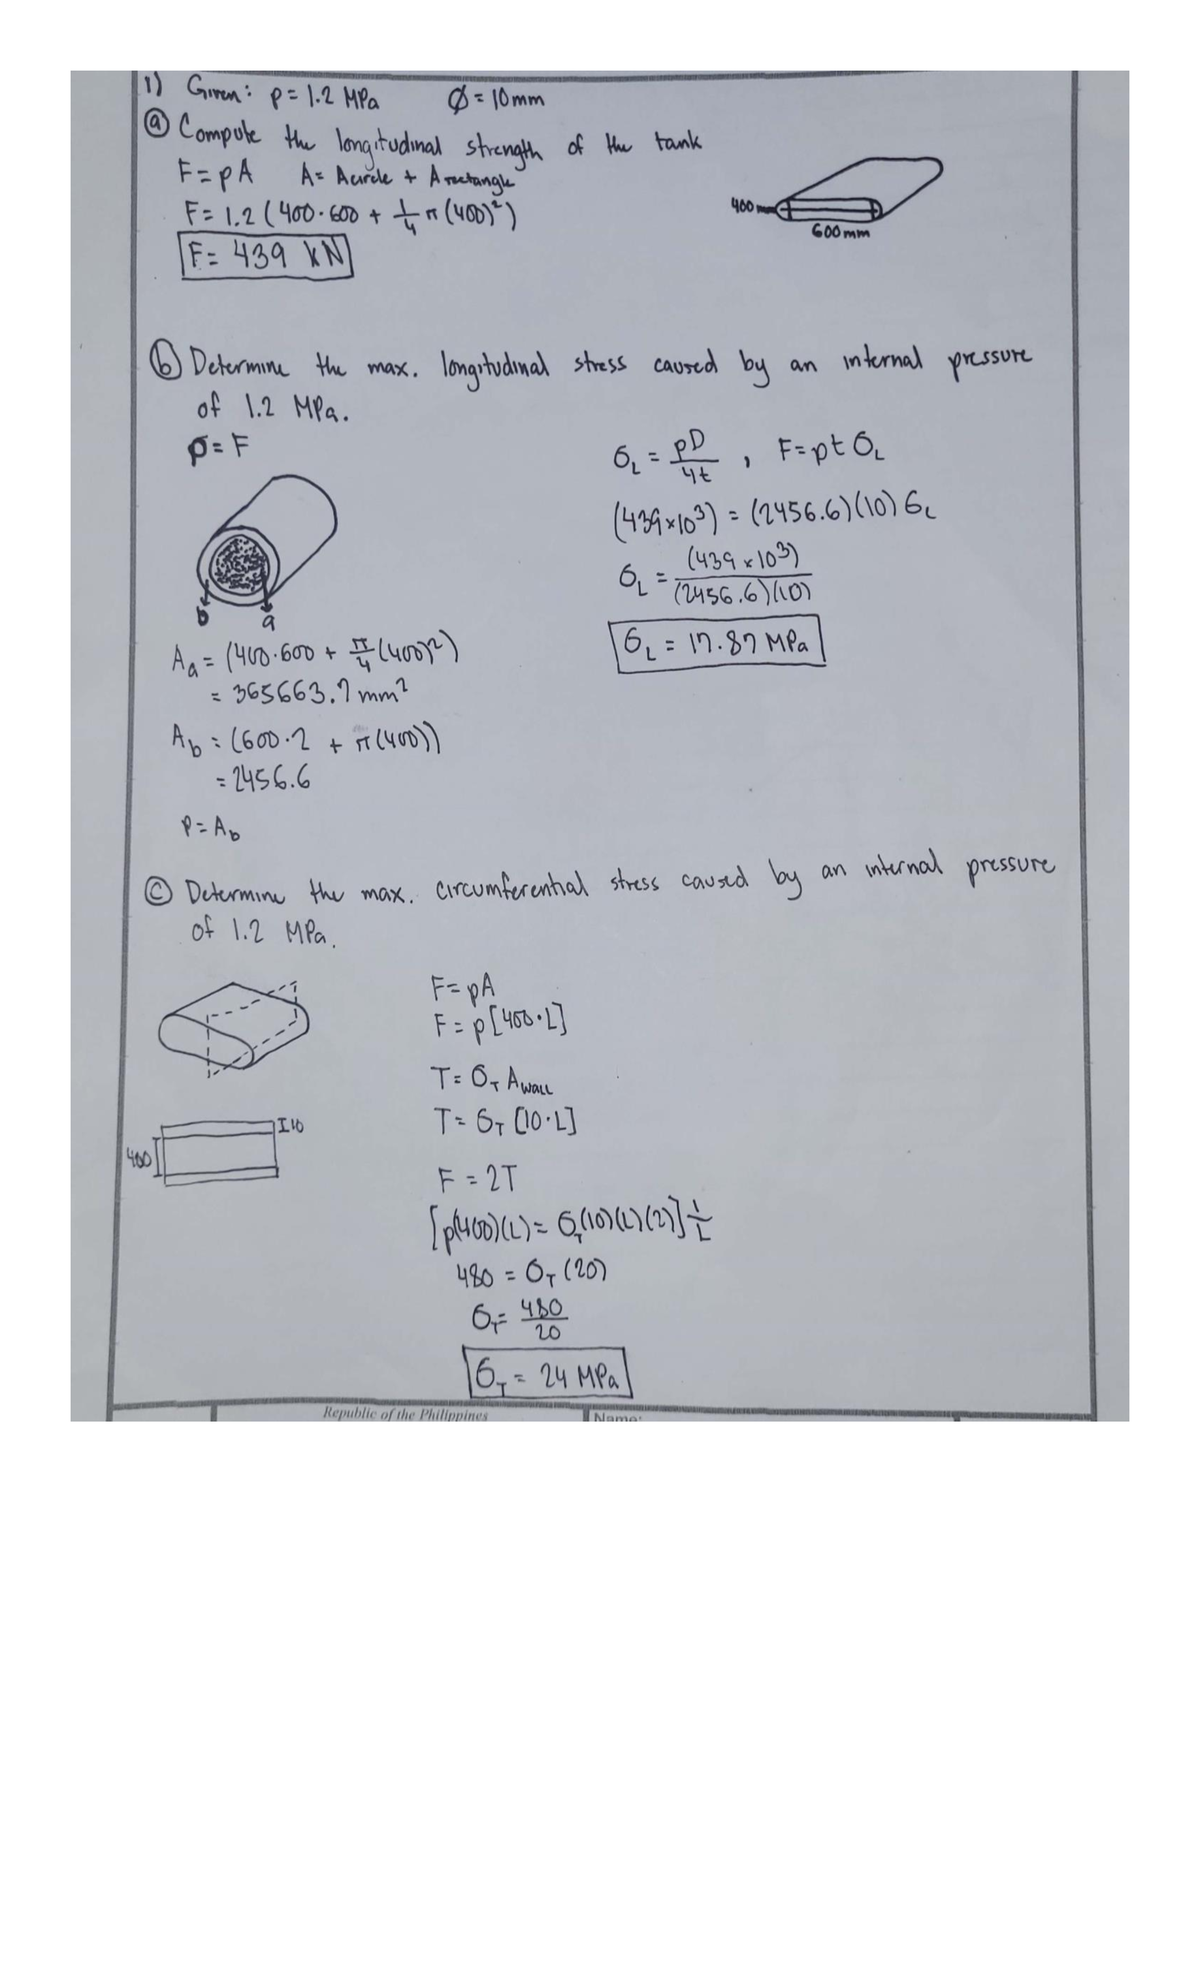 1) Given: p = 1.2 MPa Ø = 10mm
ⓐ Compute the longitudinal strength of the tank
F = pA A = Acircle + Arectangle
F = 1.2 (400·600 + 1/4 π (400)²)
F = 439 kN
400 mm
600mm
ⓑ Determine the max. longitudinal stress caused by an internal pressure
of 1.2 MPa.
p = F
b
a
A_a = (400·600 + π/4 (400)²)
= 365663.7 mm²
A_b = (600·2 + π(400))
= 2456.6
P = A_b
σ_L = pD/4t , F = ptσ_L
(439×10³) = (2456.6)(10) σ_L
σ_L = (439×10³)/(2456.6)(10)
σ_L = 17.87 MPa
ⓒ Determine the max. circumferential stress caused by an internal pressure
of 1.2 MPa.
400
I10
F = pA
F = p[400·L]
T = σ_T A_wall
T = σ_T [10·L]
F = 2T
[p(400)(L) = σ_T(10)(L)(2)] 1/L
480 = σ_T (20)
σ_T = 480/20
σ_T = 24 MPa
Republic of the Philippines
Name: